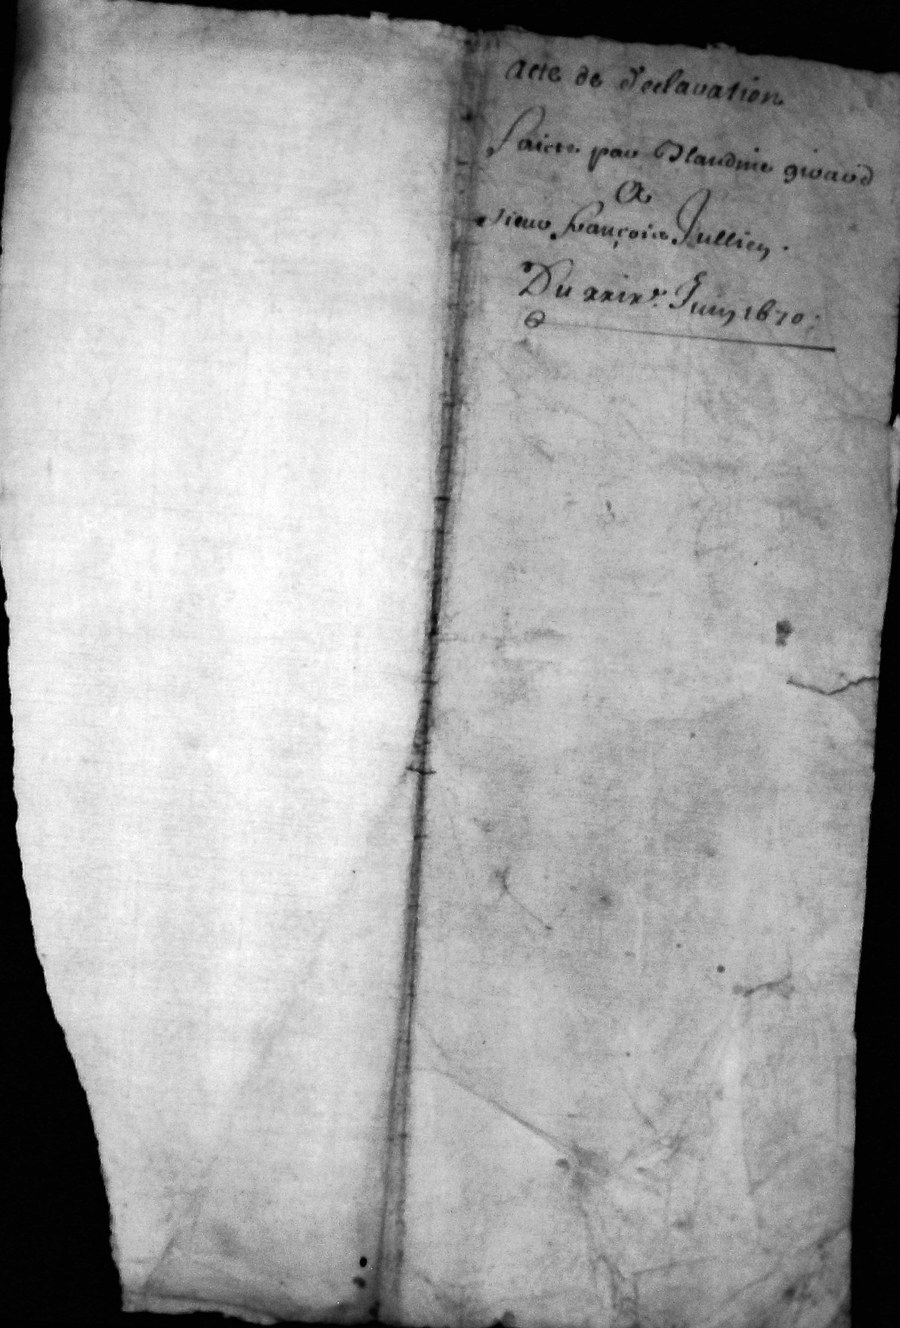 Acte de declaration
faicte par Claudine giraud
A
sieur françois Jullien.
Du xxixe. Juin 1670.